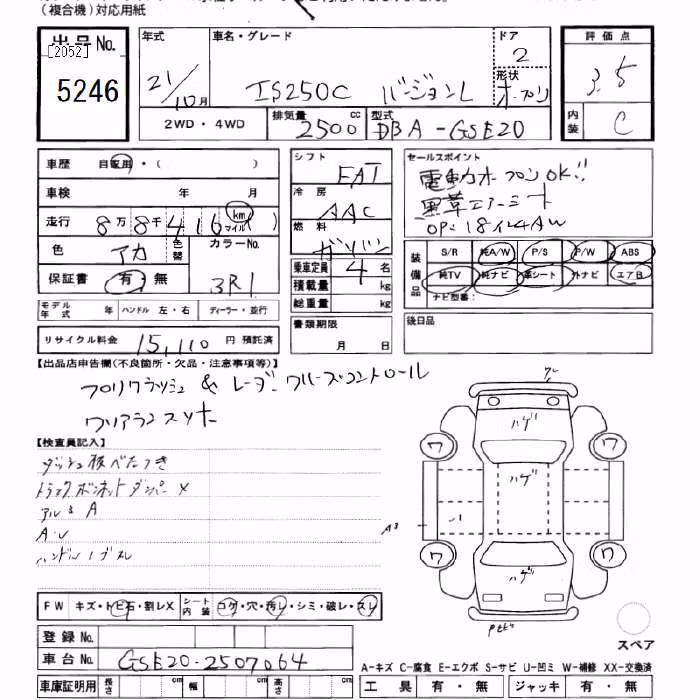 （複合機）対応用紙
出品No.
[2052]
5246
年式
21/10月
車名・グレード
IS250C バージョンL
ドア
2
形状
オープン
2WD・4WD
排気量
2500 cc
型式
DBA-GSE20
評価点
3.5
内装
C
車歴 自家用・( )
車検 年 月
走行 8万8千416 km マイル( )
色 アカ 色替 カラーNo. 3R1
保証書 有・無
モデル年式 年 ハンドル 左・右 ディーラー・並行
リサイクル料金 15,110 円 預託済
シフト FAT
冷房 AAC
燃料 ガソリン
乗車定員 4 名
積載量 kg
総重量 kg
書類期限
月 日
セールスポイント
電動オープンOK!!
黒革エアーシート
OP・18インチAW
装備品
S/R 純A/W P/S P/W ABS
純TV 純ナビ 革シート 外ナビ エアB
ナビ型番：
後日品
【出品店申告欄(不良箇所・欠品・注意事項等)】
プリクラッシュ & レーダークルーズコントロール
クリアランスソナー
【検査員記入】
ダッシュ板べたつき
トランクボンネットダンパー×
アルミA
A・U
ハンドル
FW キズ・トビ石・割レX
シート内装 コゲ・穴・汚レ・シミ・破レ・スレ
登録No.
車台No. GSE20-2507064
車庫証明用 長さ cm 幅 cm 高さ cm
ハゲ
ハゲ
ハゲ
ワ
ワ
ワ
ワ
スペア
A-キズ C-腐食 E-エクボ S-サビ U-凹ミ W-補修 XX-交換済
工具 有・無 ジャッキ 有・無